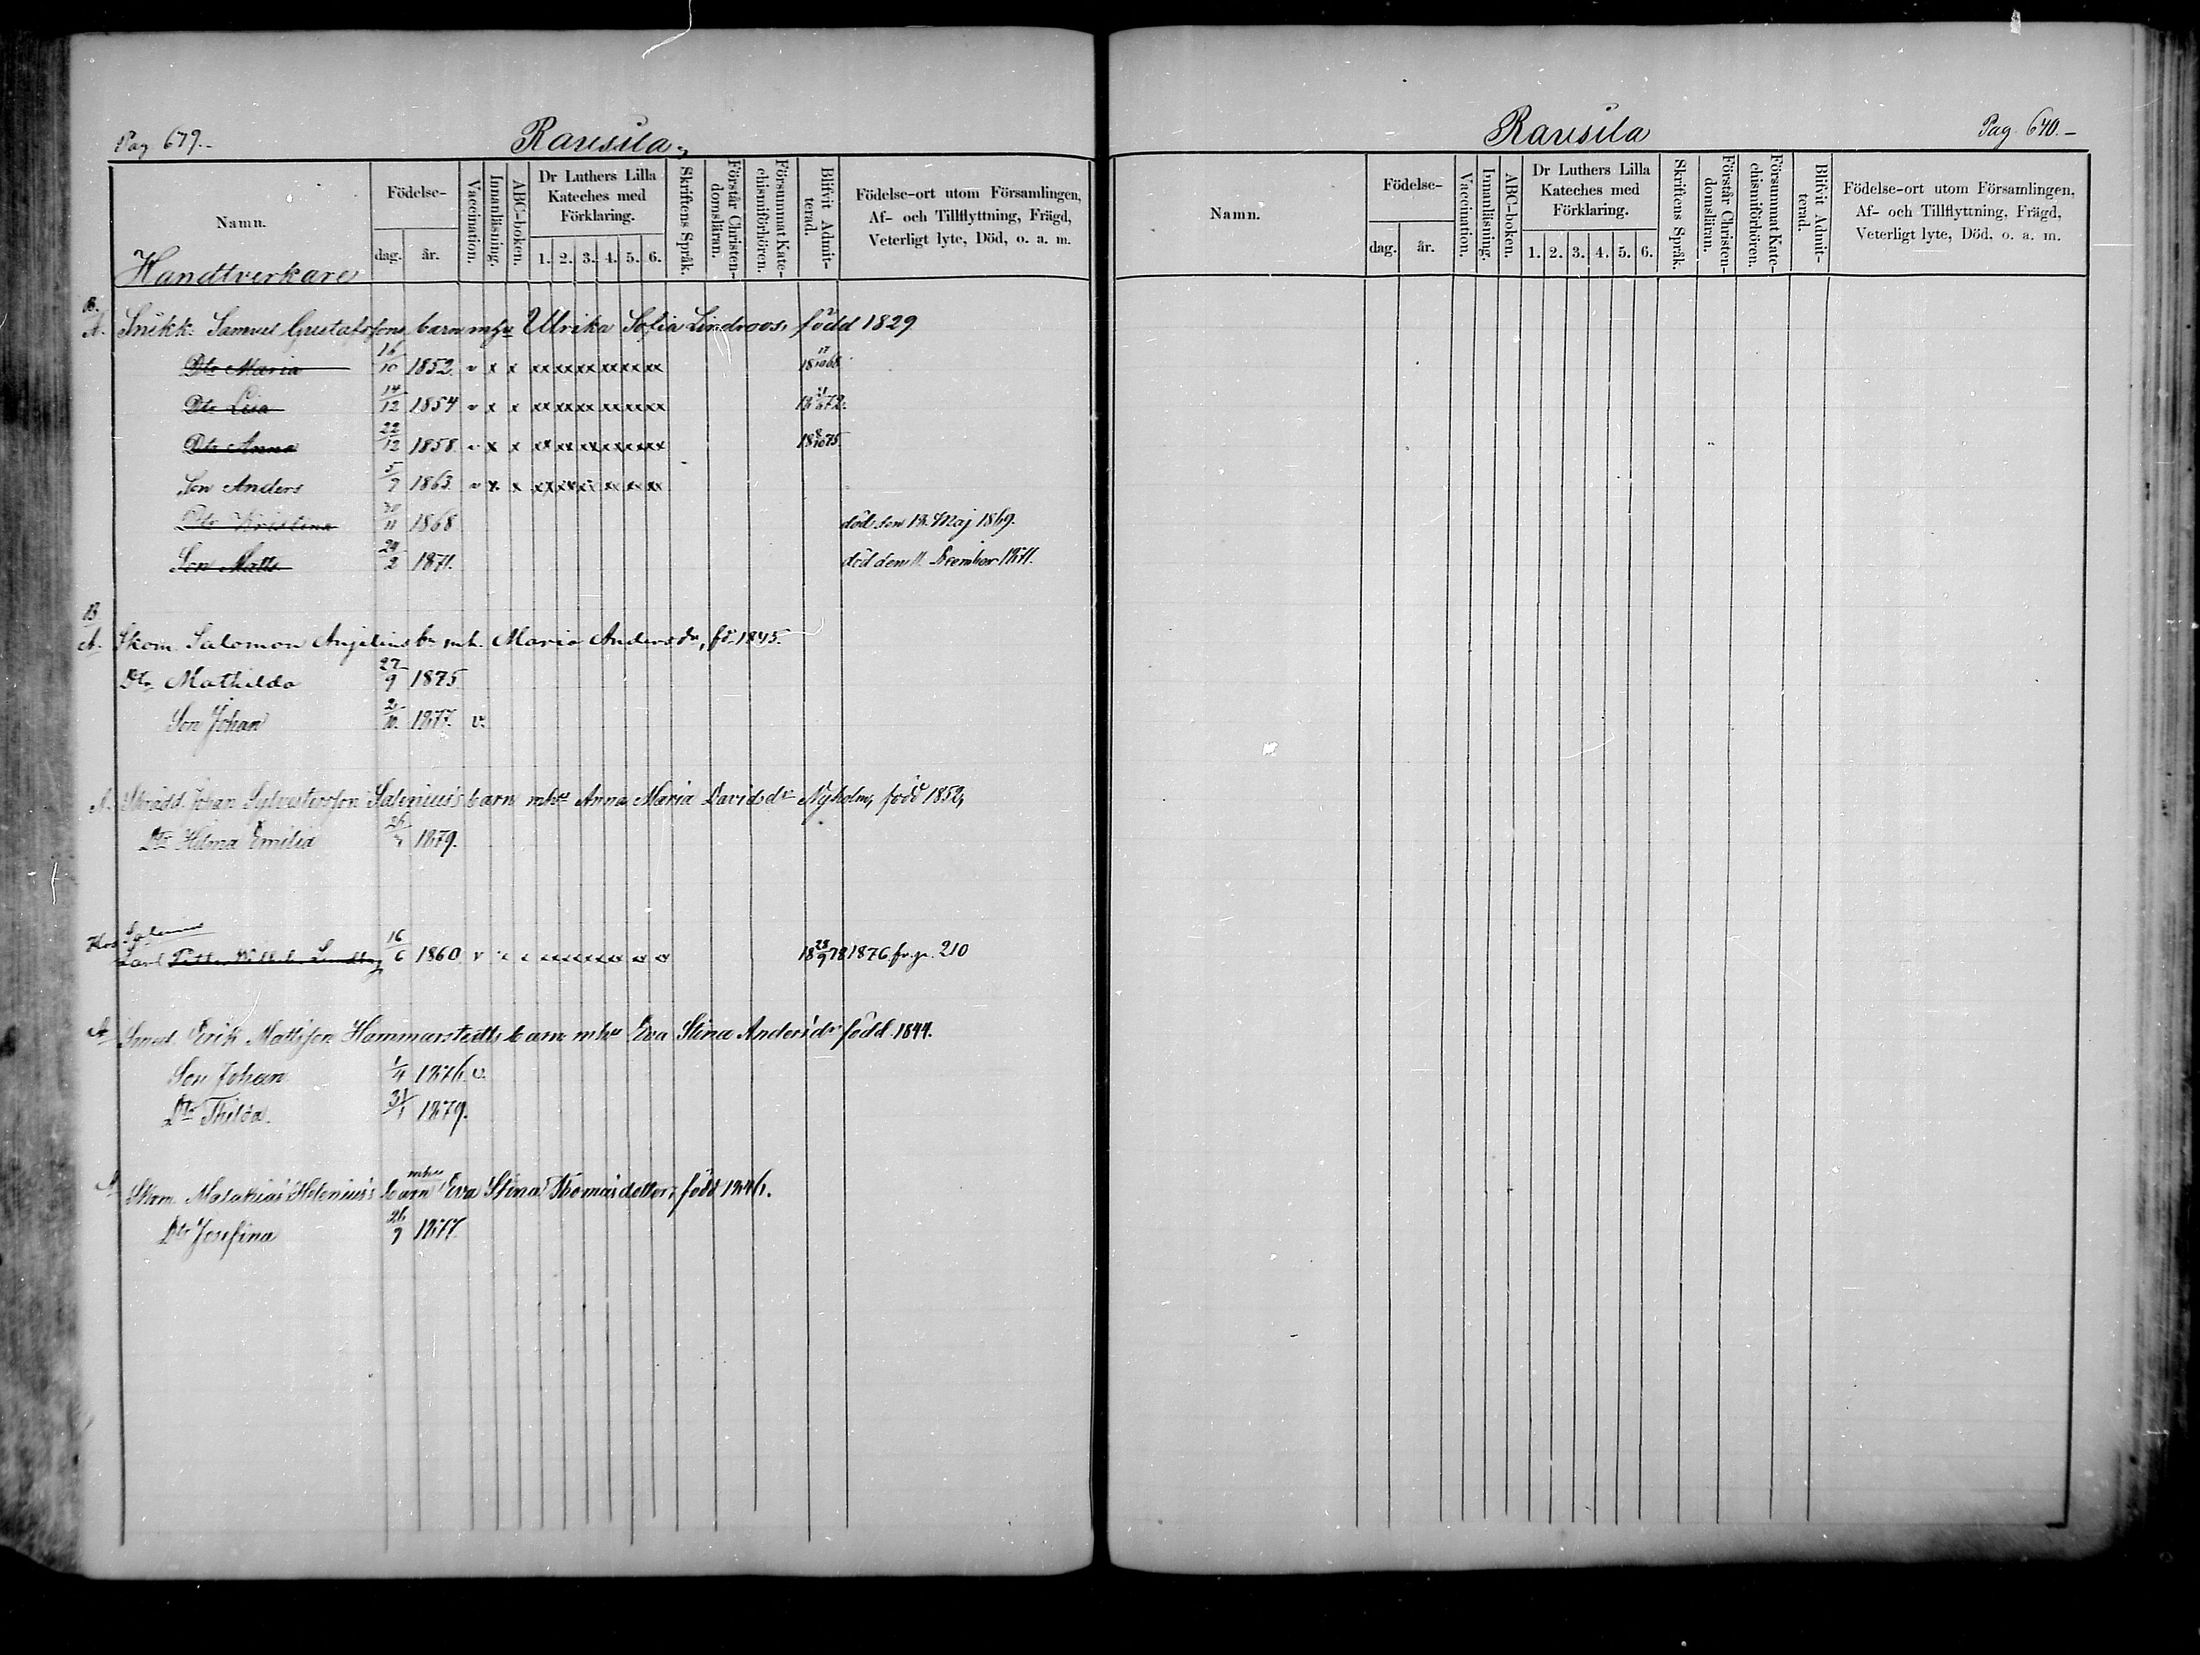 Pag 679.-
Rausila,
Namn.
Födelse-
dag.
år.
Vaccination.
Innanläsning.
ABC-boken.
Dr Luthers Lilla
Kateches med
Förklaring.
1. 2. 3. 4. 5. 6.
Skriftens Språk.
Förstår Christen-
domsläran.
Försummat Kate-
chismiförhören.
Blifvit Admit-
terad.
Födelse-ort utom Församlingen,
Af- och Tillflyttning, Frägd,
Veterligt lyte, Död, o. a. m.
Handtverkare
B.
A. Snikk. Samuel Gustafssons barn mhu Ulrika Sofia Lindroos, född 1829
Dtr Maria 16/10 1852. v x x xx xx xx xx xx xx 18 17/10 68
Dtr Lisa 14/12 1854 v x x xx xx xx xx xx xx
Dtr Anna 22/12 1858. v x x xx xx xx xx xx xx 18 8/10 75
Son Anders 5/7 1863 v x x xx xx xx xx xx xx
Dtr Kristina 30/11 1868 död den 13. Maj 1869.
Son Matts 24/2 1871. död den 11. December 1871.
B
A. Skom. Salomon Anjelins bn mh. Maria Andersdr, fd. 1845.
Dtr Mathilda 27/9 1875
Son Johan 2/10. 1877. v.
A. Skrädd. Johan Sylvestersson Salenius's barn mhu Anna Maria Davidsdr Nyholm, född 1852,
Dtr Hilma Emilia 1879.
Hos Salenius
Carl Petter Wilhelm Lindberg 16/6 1860 v x x x x x x x x 18 28/9 78 1876 fr. p. 210
A. Smed. Erik Mattsson Hammarstedts barn mhu Eva Stina Andersdr född 1844.
Son Johan 1/4 1876. v.
Dtr Thilda. 31/1 1879.
mhu
A Skom. Malakias Helenius's barn Eva Stina Thomasdotter, född 1846.
Dtr Josefina 26/9 1877.
Rausila
Pag. 640.-
Namn.
Födelse-
dag.
år.
Vaccination.
Innanläsning.
ABC-boken.
Dr Luthers Lilla
Kateches med
Förklaring.
1. 2. 3. 4. 5. 6.
Skriftens Språk.
Förstår Christen-
domsläran.
Försummat Kate-
chismiförhören.
Blifvit Admit-
terad.
Födelse-ort utom Församlingen,
Af- och Tillflyttning, Frägd,
Veterligt lyte, Död, o. a. m.